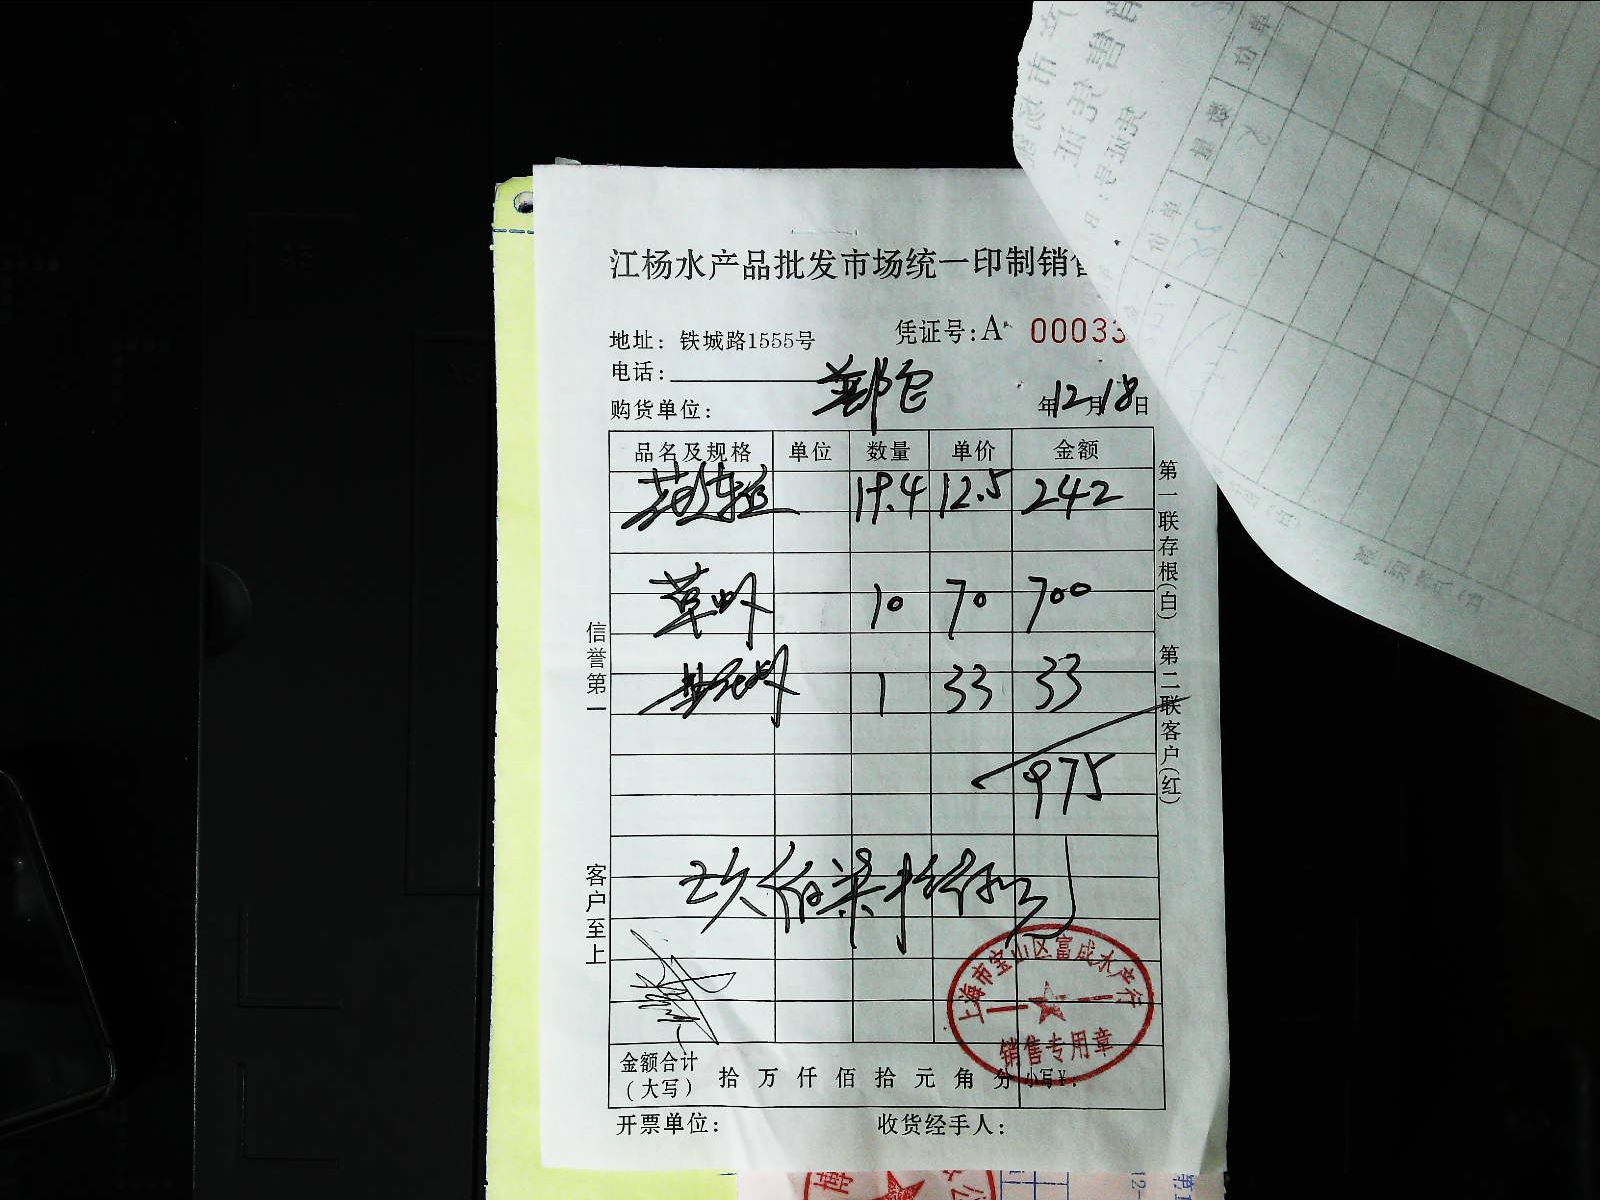 江杨水产品批发市场统一印制销售
地址：铁城路1555号 凭证号：A 00033
电话：
购货单位： 年12月18日
品名及规格 单位 数量 单价 金额
19.4 12.5 242
草虾 10 70 700
1 33 33
975
玖佰柒拾伍元
金额合计（大写） 拾 万 仟 佰 拾 元 角 分 小写¥：
开票单位： 收货经手人：
信誉第一
客户至上
第一联存根（白） 第二联客户（红）
上海市宝山区富成水产行
销售专用章